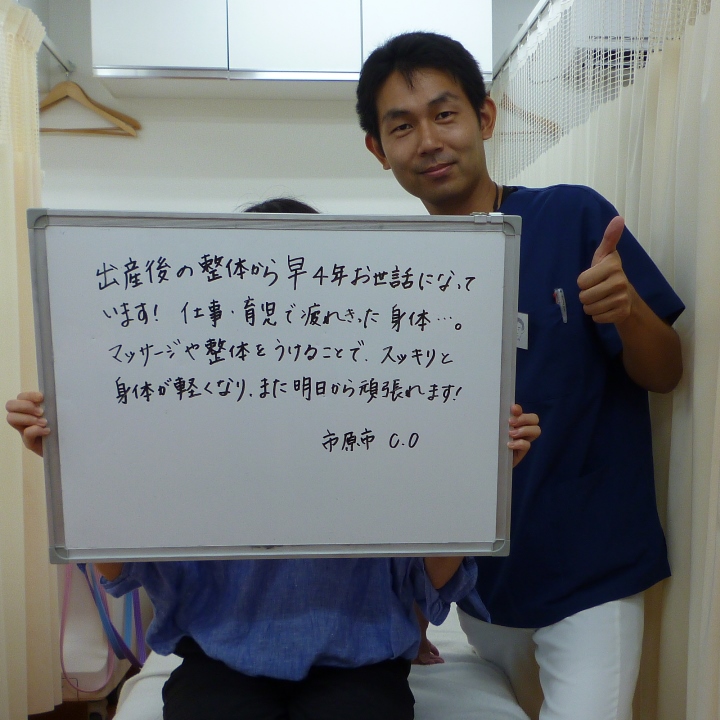 出産後の整体から早4年お世話になって
います! 仕事・育児で疲れきった身体…。
マッサージや整体をうけることで、スッキリと
身体が軽くなり、また明日から頑張れます!
市原市 C.O